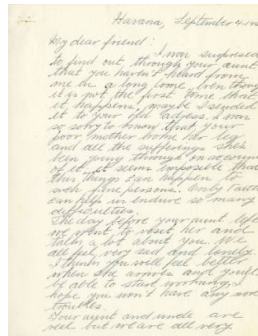 Havana, September 4, 19
My dear friend:
I was surprised
to find out through your aunt
that you haven't heard from
me in a long time even though
it is not the first time that
it happens, maybe I sended
it to your old adress. I was
so sorry to know that your
poor mother broke her leg
and all the sufferings she's
been going through on account
of it. It seems impossible that
this things can happen to
such fine persons. Only Faith
can help in endure so many
difficulties.
The day before your aunt left
we went to visit her and
talk a lot about you. We
all feel very sad and lonely.
I think you will feel better
when she arrives and you'll
be able to start working. I
hope you won't have any more
troubles.
Your aunt and uncle are
well but we are all very